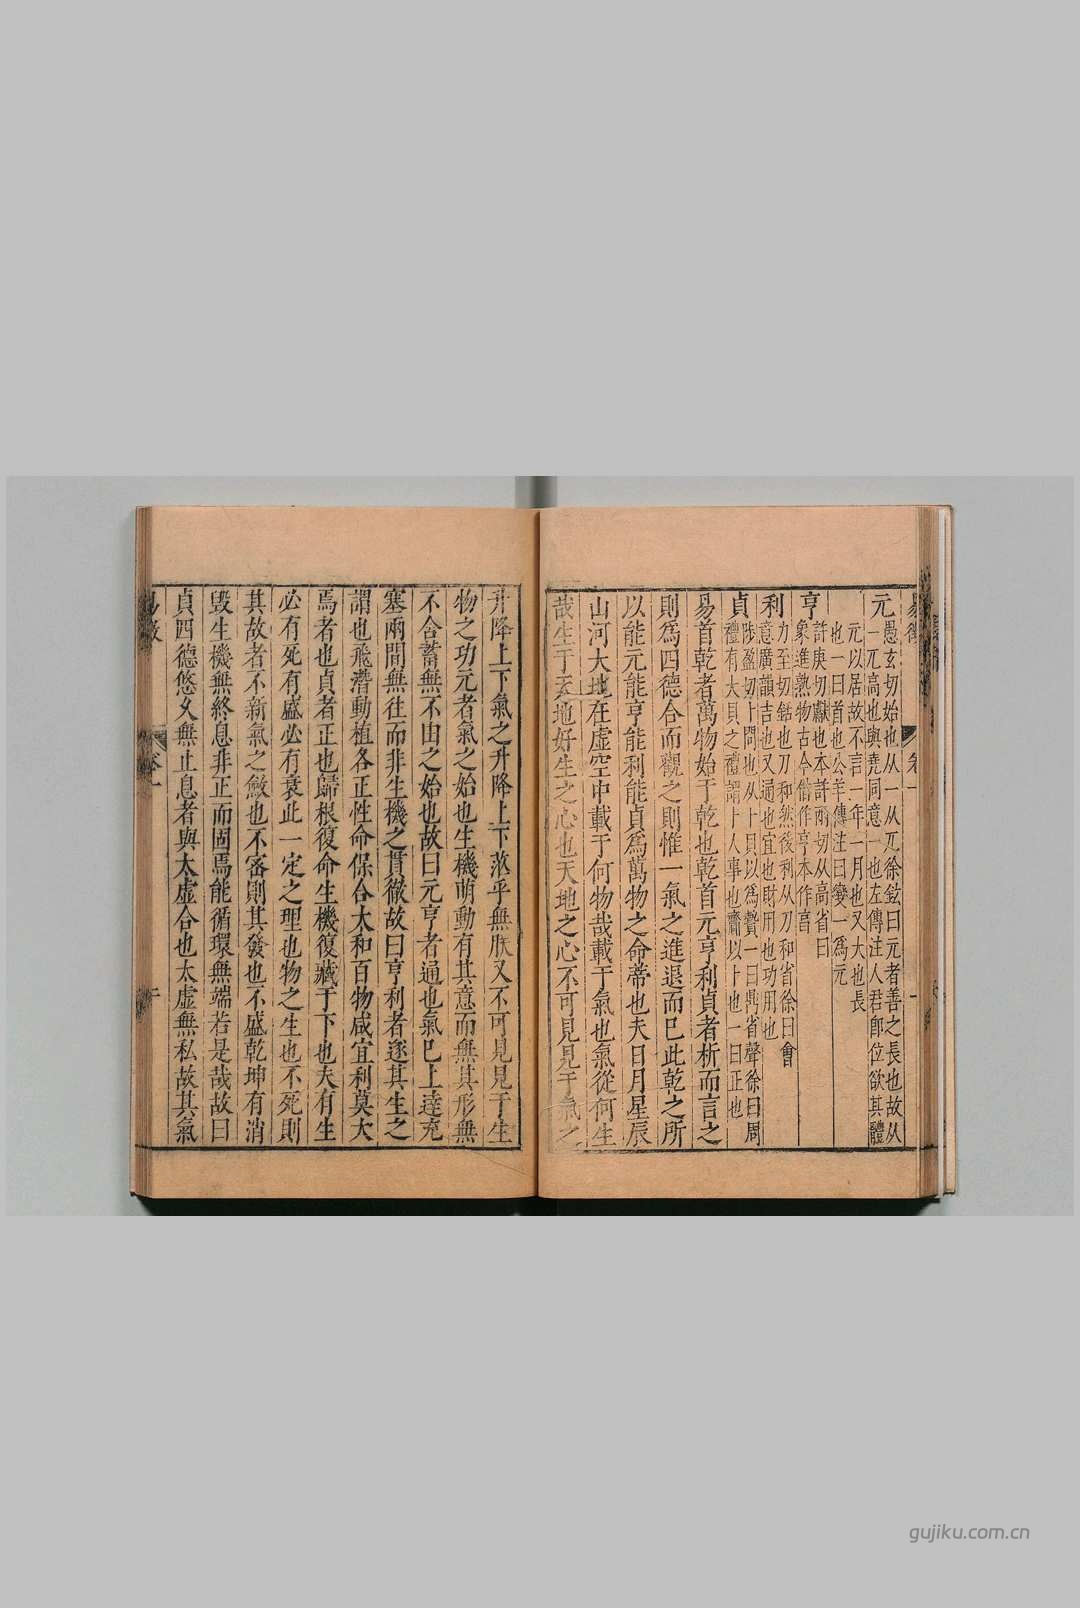 元愚玄切始也从一从兀徐鉉曰元者善之長也故从
一兀高也與堯同意一也左傳注人君即位欲其體
元以居故不言一年一月也又大也長
也一曰首也公羊傳注曰變一爲元
亨許庚切獻也本許兩切从高省曰
象進熟物古今借作亨本作亯
利力至切銛也刀和然後利从刀和省徐曰會
意廣韻吉也又通也宜也財用也功用也
貞陟盈切卜問也从卜貝以爲贄一曰鼎省聲徐曰周
禮有大貝之禮謂卜人事也齎以卜也一曰正也
易首乾者萬物始于乾也乾首元亨利貞者析而言之
則爲四德合而觀之則惟一氣之進退而已此乾之所
以能元能亨能利能貞爲萬物之命蔕也夫日月星辰
山河大地在虛空中載于何物哉載于氣也氣從何生
哉生于天地好生之心也天地之心不可見見于氣之
升降上下氣之升降上下蒸乎無朕又不可見見于生
物之功元者氣之始也生機萌動有其意而無其形無
不含蓄無不由之始也故曰元亨者通也氣巳上達充
塞兩間無往而非生機之貫徹故曰亨利者遂其生之
謂也飛潛動植各正性命保合太和百物咸宜利莫大
焉者也貞者正也歸根復命生機復藏于下也夫有生
必有死有盛必有衰此一定之理也物之生也不死則
其故者不新氣之斂也不密則其發也不盛乾坤有消
毀生機無終息非正而固焉能循環無端若是哉故曰
貞四德悠久無止息者與太虛合也太虛無私故其氣
卷一
gujiku.com.cn